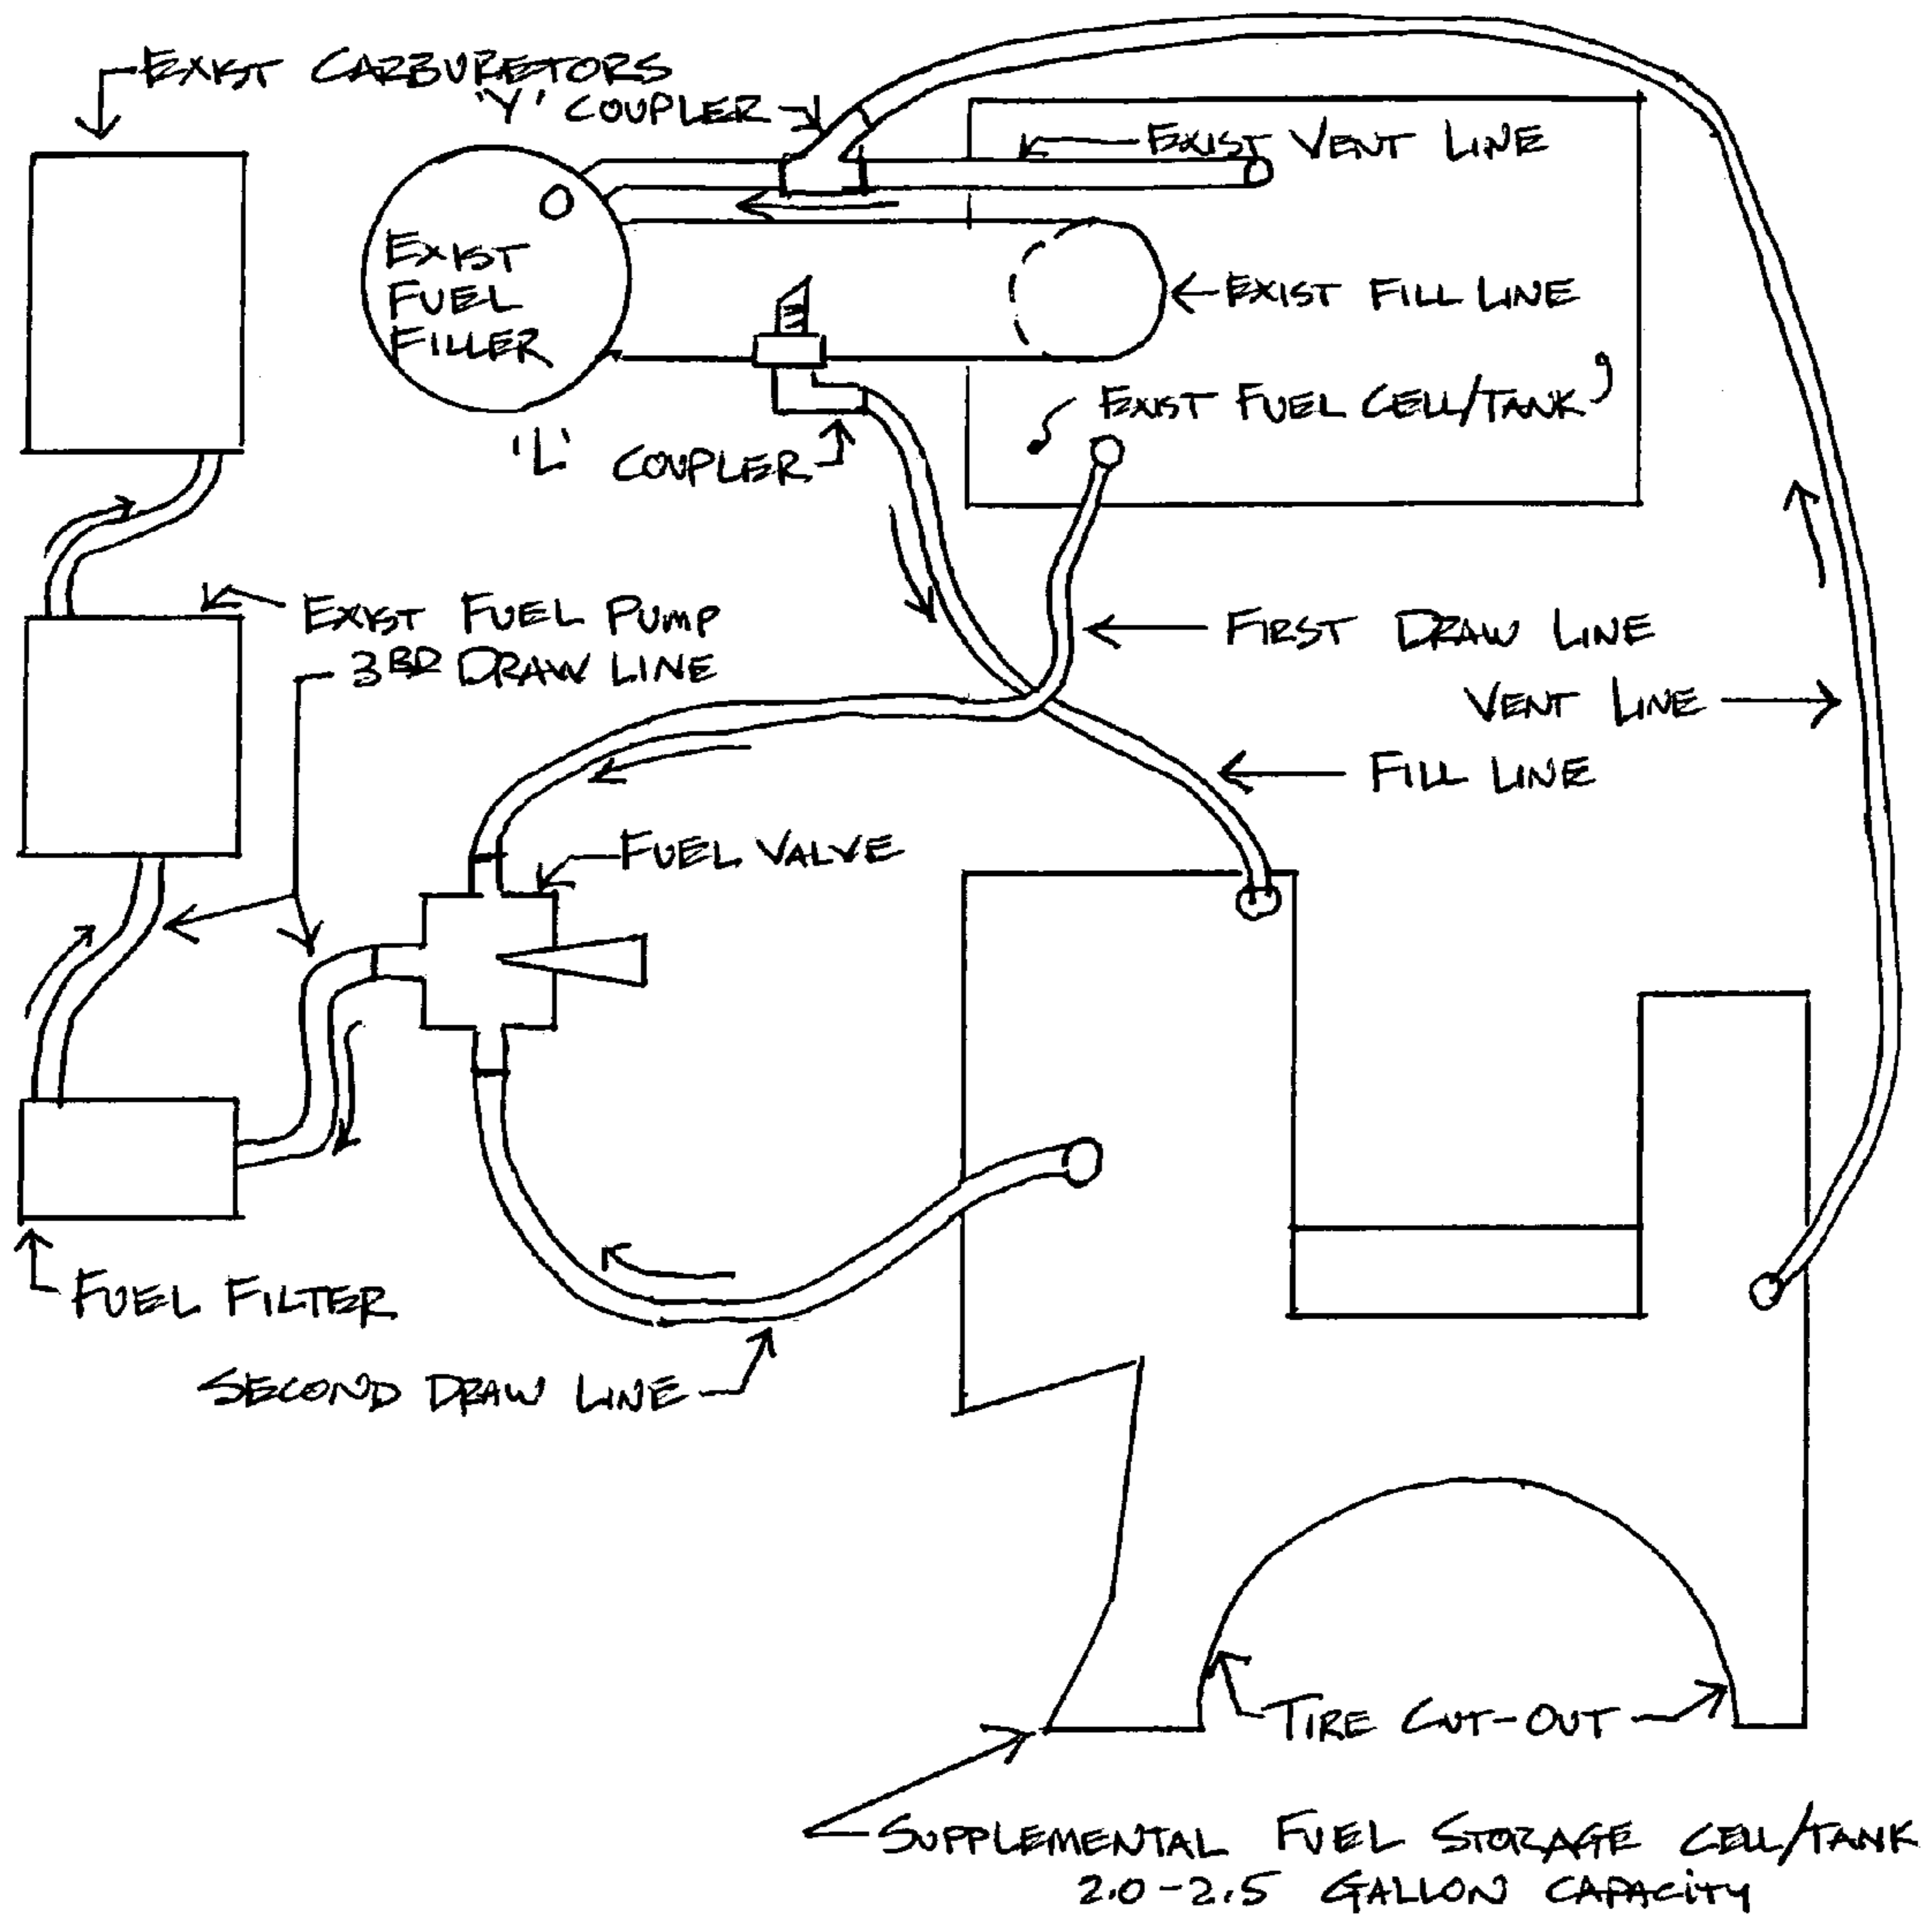 EXIST CARBURETORS
'Y' COUPLER
EXIST VENT LINE
EXIST
FUEL
FILLER
EXIST FILL LINE
EXIST FUEL CELL/TANK
'L' COUPLER
EXIST FUEL PUMP
3RD DRAW LINE
FIRST DRAW LINE
VENT LINE
FILL LINE
FUEL VALVE
FUEL FILTER
SECOND DRAW LINE
TIRE CUT-OUT
SUPPLEMENTAL FUEL STORAGE CELL/TANK
2.0-2.5 GALLON CAPACITY